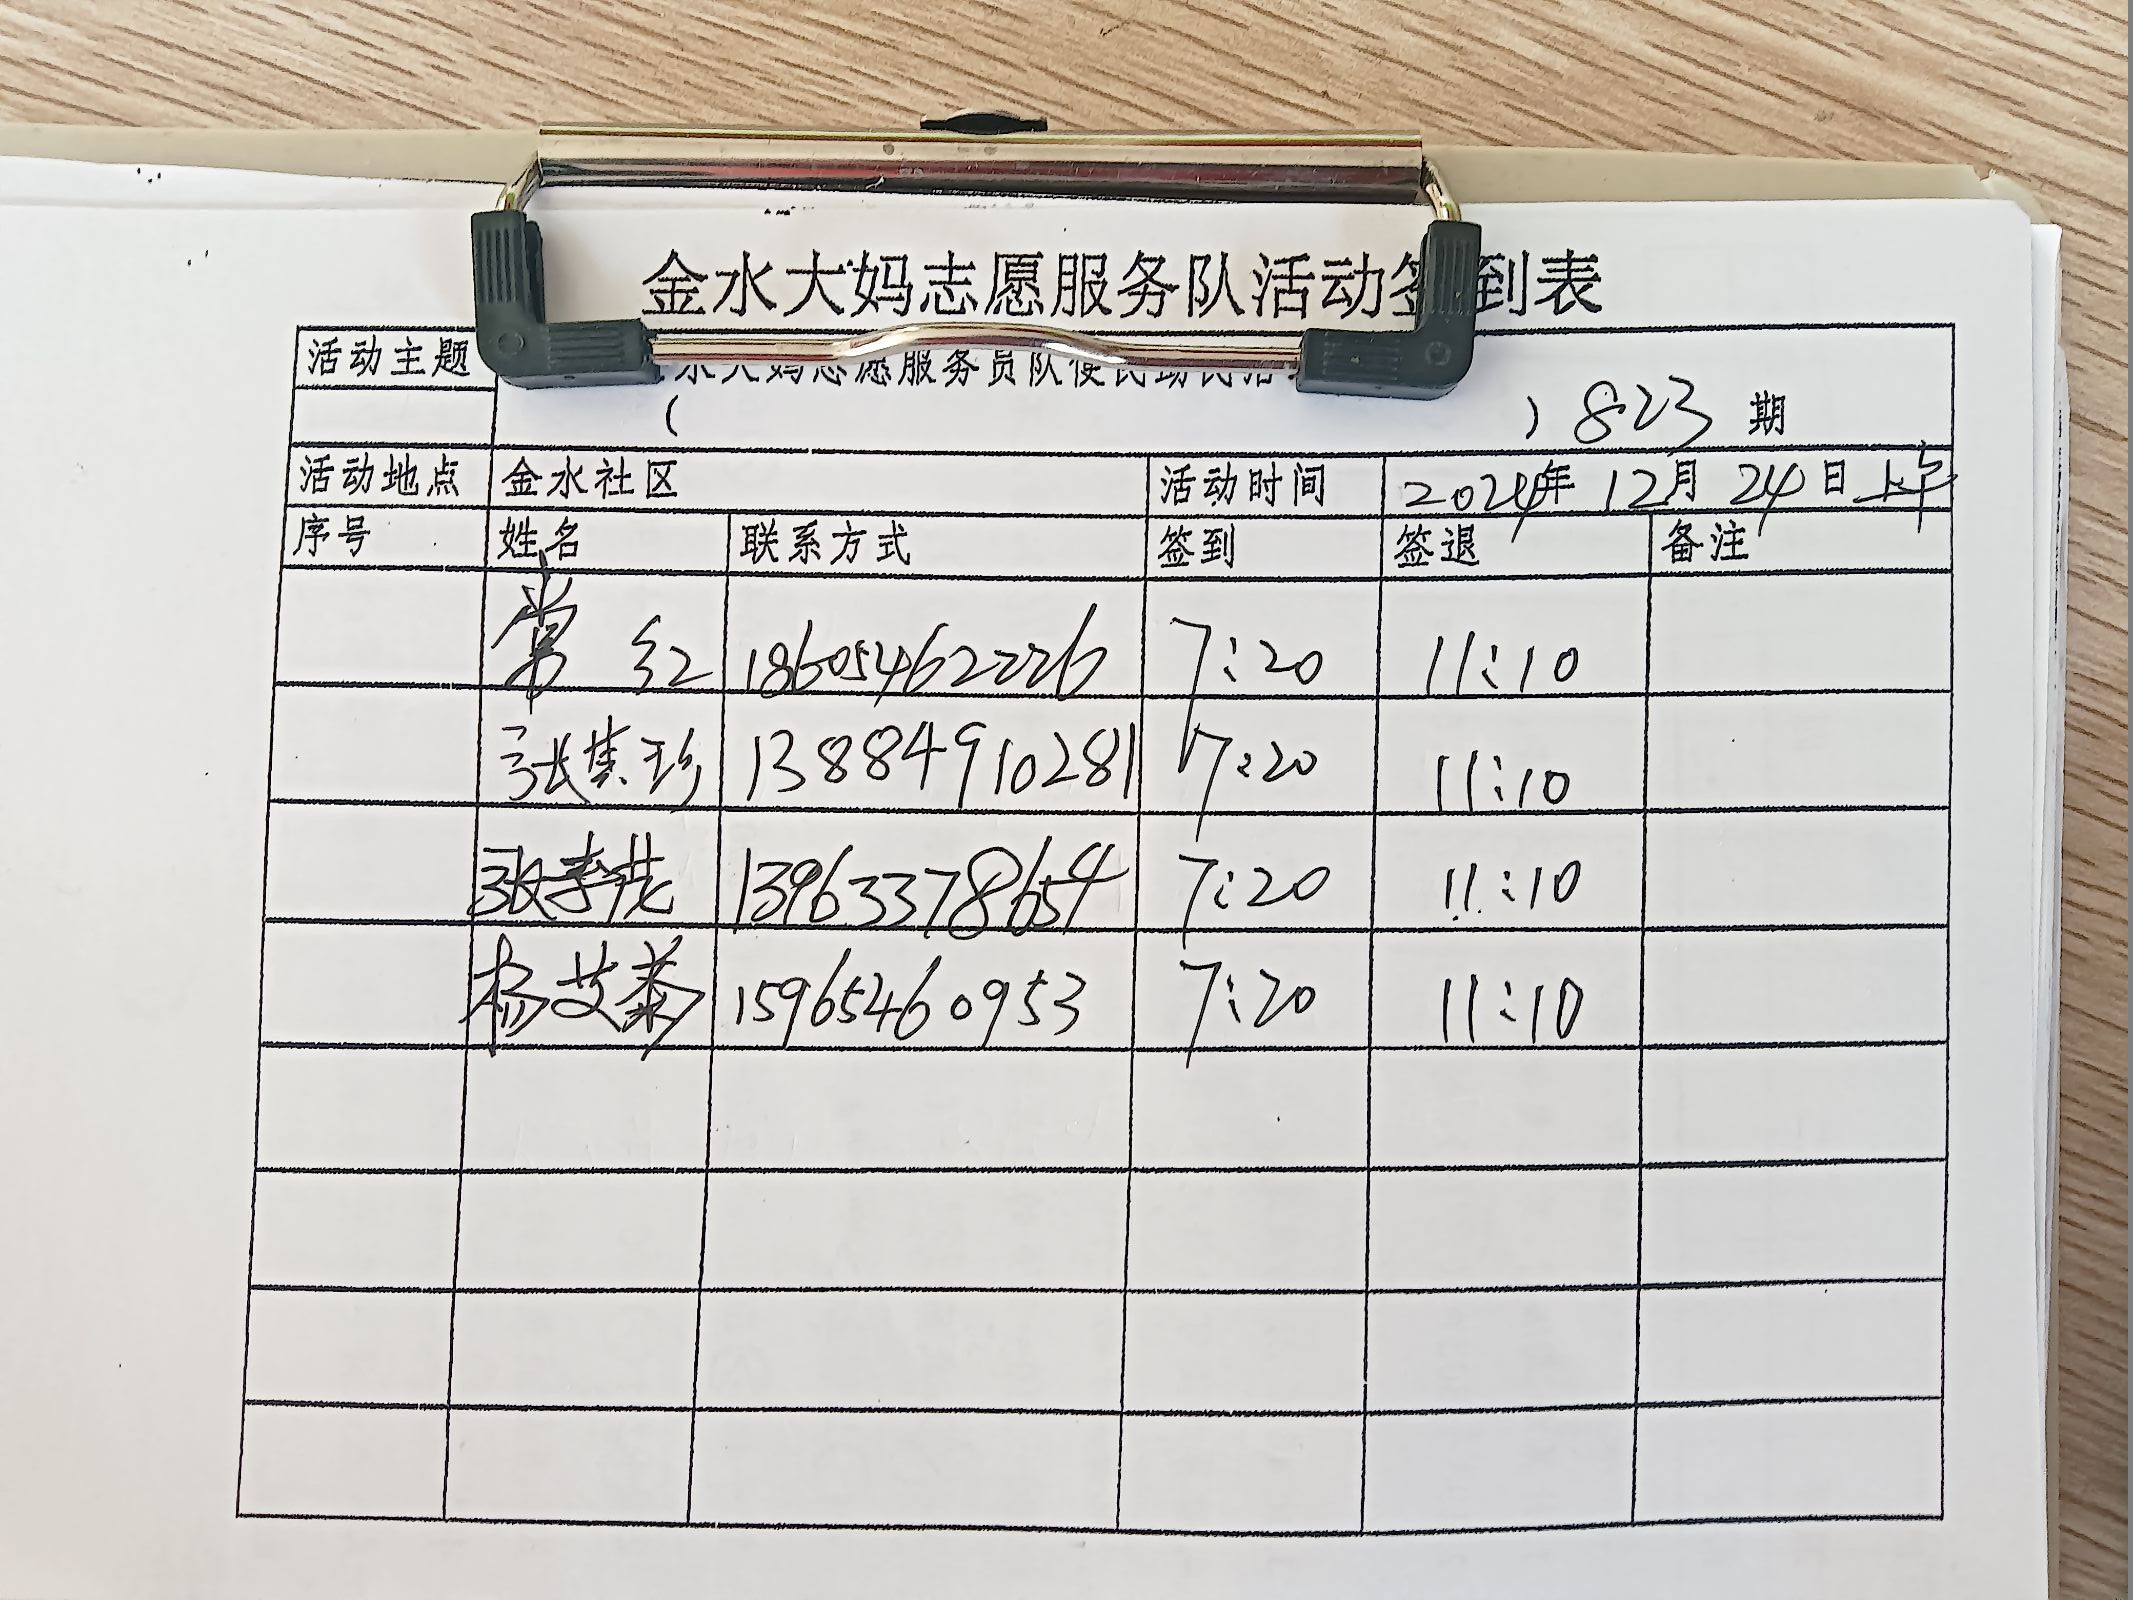 金水大妈志愿服务队活动签到表
活动主题 金水大妈志愿服务员队便民助民活动
( ) 823 期
活动地点 金水社区 活动时间 2024年 12月 24日上午
序号 姓名 联系方式 签到 签退 备注
常 红 18605462226 7:20 11:10
张 珍 13884910281 7:20 11:10
张 13963378654 7:20 11:10
杨艾 15965460953 7:20 11:10